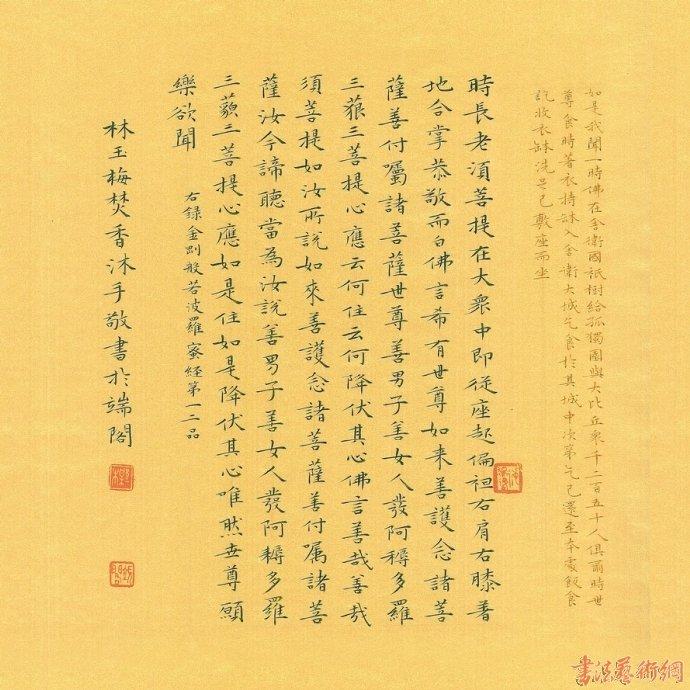 如是我聞一時佛在舍衛國祇樹給孤獨園與大比丘衆千二百五十人俱爾時世
尊食時著衣持鉢入舍衛大城乞食於其城中次第乞已還至本處飯食
訖收衣鉢洗足已敷座而坐
時長老須菩提在大衆中即從座起偏袒右肩右膝着
地合掌恭敬而白佛言希有世尊如来善護念諸菩
薩善付囑諸菩薩世尊善男子善女人發阿耨多羅
三藐三菩提心應云何住云何降伏其心佛言善哉善哉
須菩提如汝所說如来善護念諸菩薩善付属諸菩
薩汝今諦聽當為汝說善男子善女人發阿耨多羅
三藐三菩提心應如是住如是降伏其心唯然世尊願
樂欲聞
右錄金剛般若波羅蜜經第一二品
林玉梅焚香沐手敬書於端閣
書法藝術網